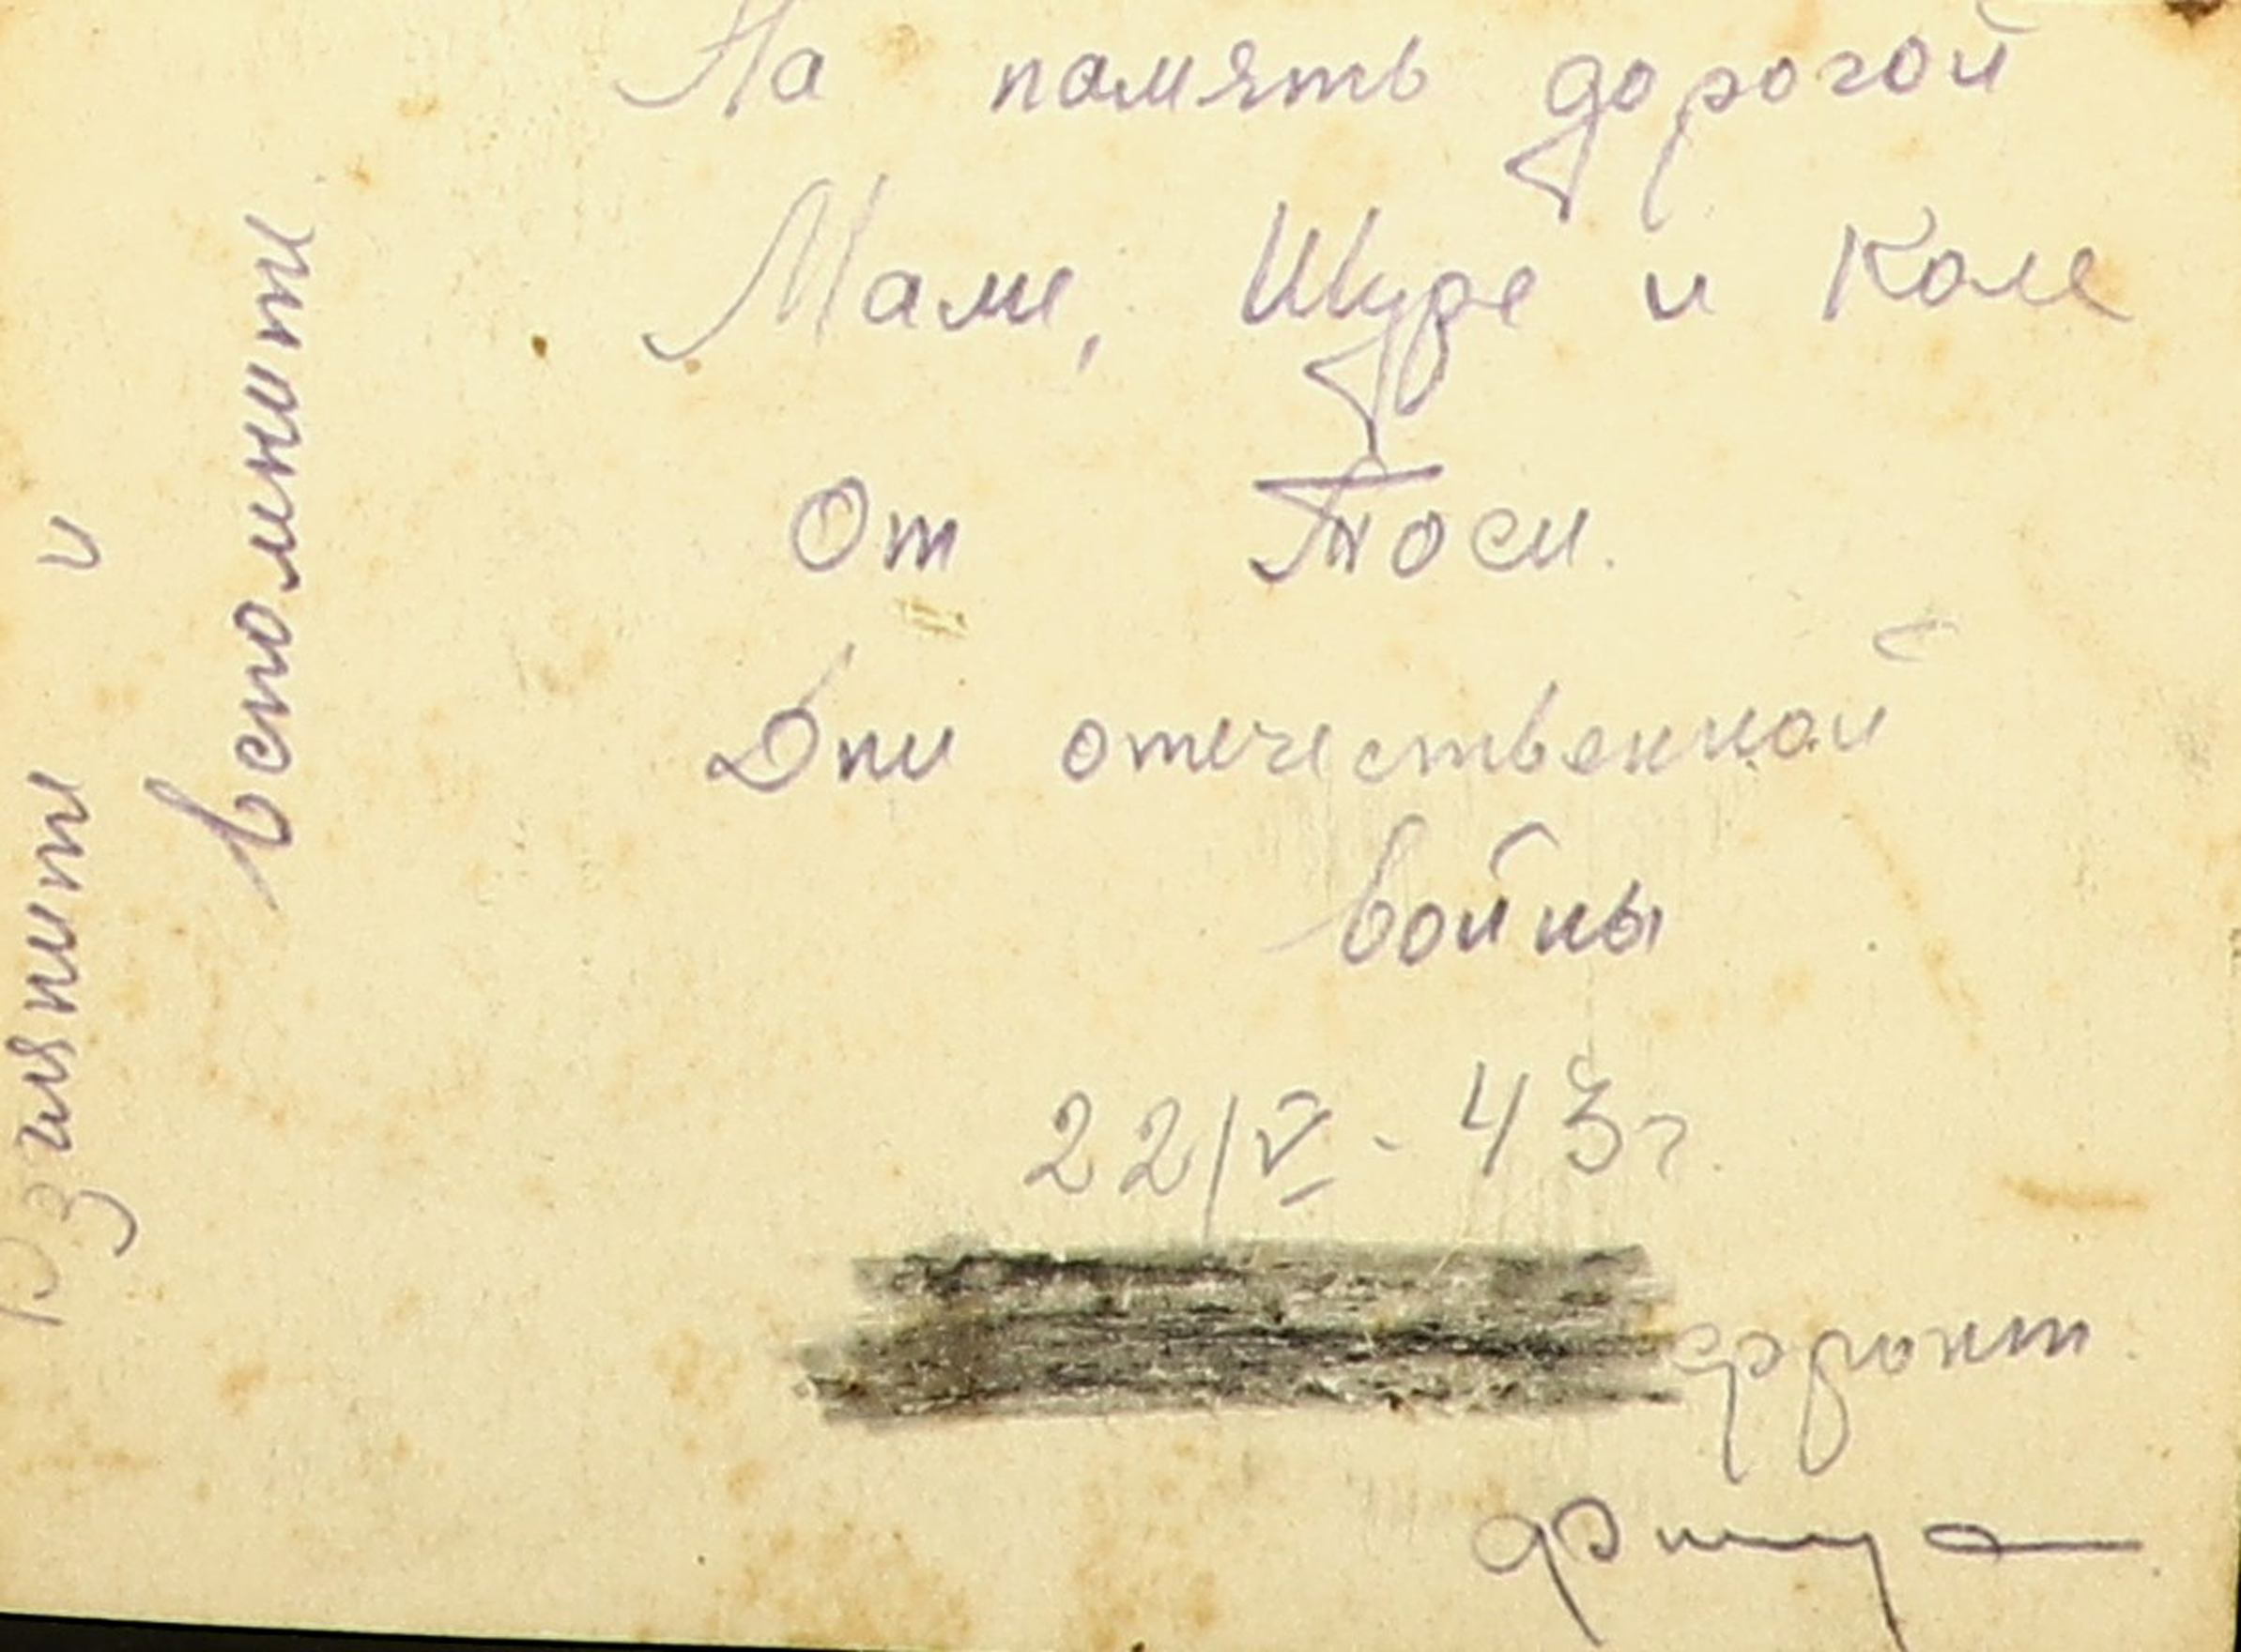 На память дорогой
Маме, Шуре и Коле
От Тоси.
Дни отечественной
войны
22/V - 43г.
фронт.
Взгляни и
вспомни